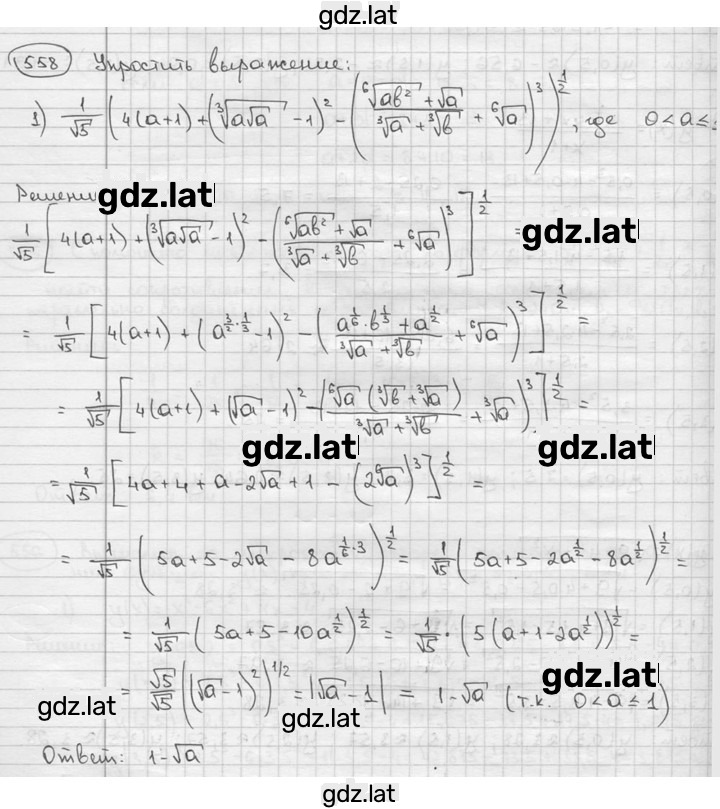 gdz.lat
558 Упростить выражение:
1) 1/√5 (4(a+1) + (∛(a√a) - 1)² - ((⁶√(ab²) + √a)/(∛a + ∛b) + ⁶√a)³)^(1/2), где 0<a≤
Решени
gdz.lat
1/√5 [4(a+1) + (∛(a√a) - 1)² - ((⁶√(ab²) + √a)/(∛a + ∛b) + ⁶√a)³]^(1/2) = gdz.lat
= 1/√5 [4(a+1) + (a^(3/2·1/3) - 1)² - ((a^(1/6)·b^(1/3) + a^(1/2))/(∛a + ∛b) + ⁶√a)³]^(1/2) =
= 1/√5 [4(a+1) + (√a - 1)² - (⁶√a (∛b + ∛a)/(∛a + ∛b) + ∛a)³]^(1/2) =
gdz.lat gdz.lat
= 1/√5 [4a + 4 + a - 2√a + 1 - (2⁶√a)³]^(1/2) =
= 1/√5 (5a + 5 - 2√a - 8a^(1/6·3))^(1/2) = 1/√5 (5a + 5 - 2a^(1/2) - 8a^(1/2))^(1/2) =
= 1/√5 (5a + 5 - 10a^(1/2))^(1/2) = 1/√5 · (5(a + 1 - 2a^(1/2)))^(1/2) =
= √5/√5 ((√a - 1)²)^(1/2) = |√a - 1| = 1 - √a (т.к. 0<a≤1)
gdz.lat gdz.lat gdz.lat
Ответ: 1-√a
gdz.lat